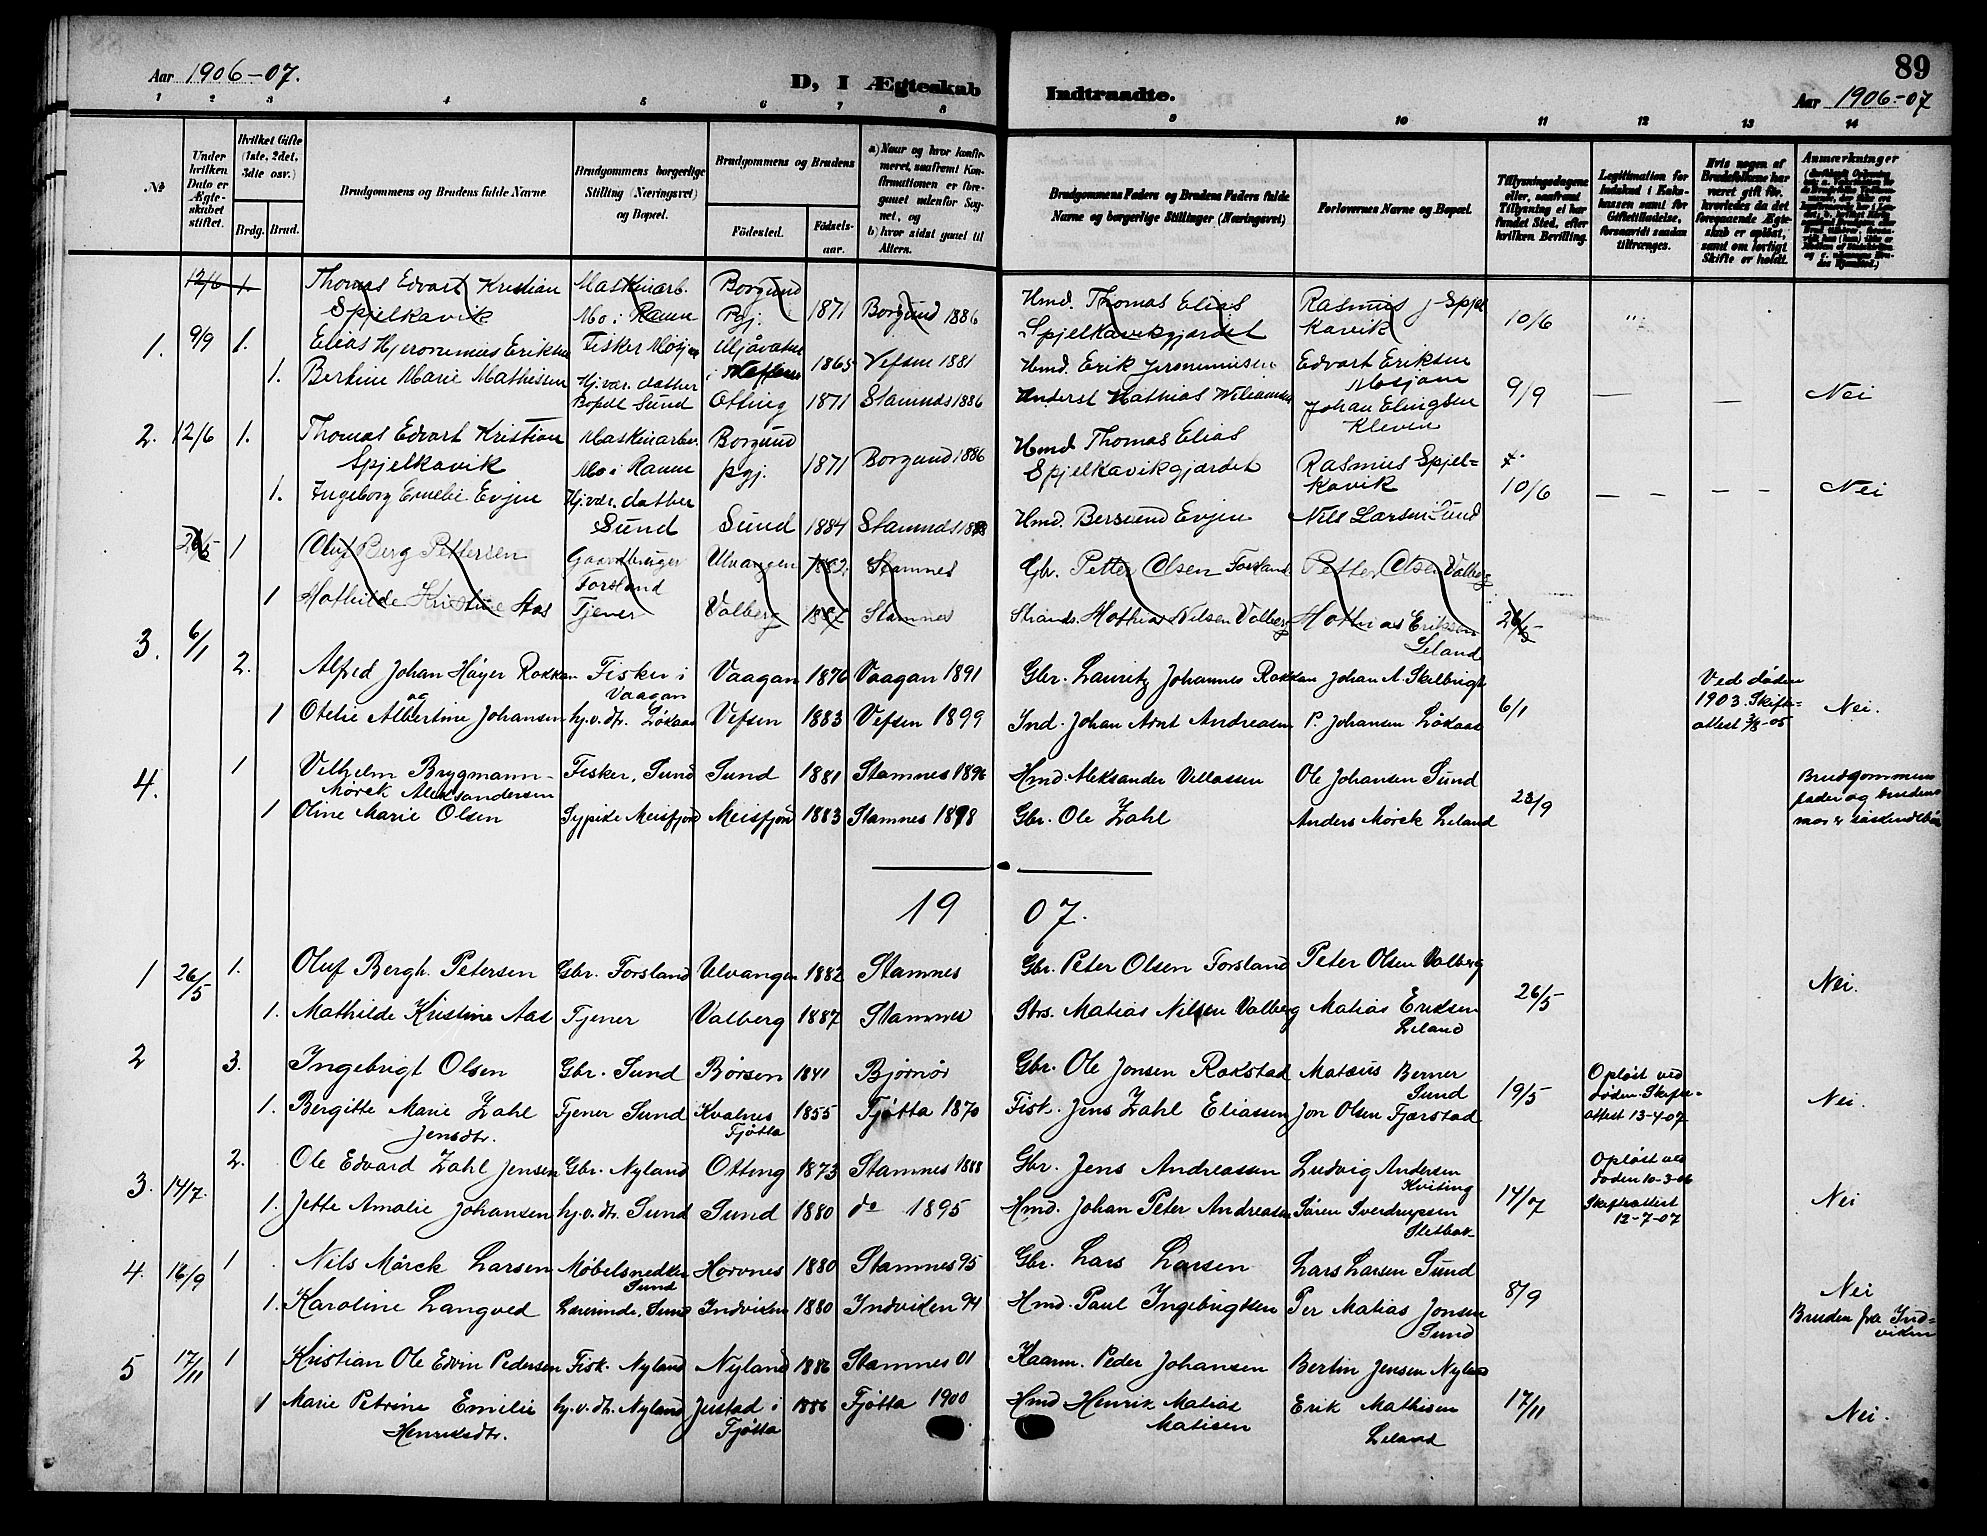 89
Aar 1906-07.
D, I Ægteskab
Indtraadte.
Aar 1906-07
1 2 3 4 5 6 7 8 9 10 11 12 13 14
№
Under hvilken Dato er Ægteskabet stiftet.
Hvilket Gifte (1ste, 2det, 3die osv.)
Brdg. Brud.
Brudgommens og Brudens fulde Navne
Brudgommens borgerlige Stilling (Næringsvei) og Bopæl.
Brudgommens og Brudens
Fødested.
Fødselsaar.
a) Naar og hvor konfirmeret, saafremt Konfirmationen er foregaaet udenfor Sognet, og
b) hvor sidst gaaet til Alters.
Brudgommens Faders og Brudens Faders fulde Navne og borgerlige Stillinger (Næringsvei)
Forlovernes Navne og Bopæl.
Tillysningsdagene eller, saafremt Tillysning ei har fundet Sted, efter hvilken Bevilling.
Legitimation for Indskud i Enkekassen samt for Giftetilladelse, forsaavidt saadan tiltrænges.
Hvis nogen af Brudefolkene har været gift før, hvorledes da det foregaaende Ægteskab er opløst, samt om lovligt Skifte er holdt.
Anmærkninger
12/6 1. Thomas Edvart Kristian Maskinarb. Borgund Hmd. Thomas Elias Rasmus J Spjel
Spjelkavik Mo i Ranen Pgj. 1871 Borgund 1886 Spjelkavikgjærdet kavik 10/6 "
1. 9/9 1. Elias Hjeronimus Eriksen Fisker Mosjøen 1865 Vefsen 1881 Hmd. Erik Jeronimusen Edvart Eriksen
1. Bertine Marie Mathissen Hj.vær. datter Mosjøen
Bopæl Sund Otting 1871 Stamnes 1886 Mathias Wiliamsen Johan Elingsen 9/9 — — Nei
Kleven
2. 12/6 1. Thomas Edvart Kristian Maskinarbe. Borgund Hmd Thomas Elias
Spjelkavik Mo i Ranen pgj. 1871 Borgund 1886 Spjelkavikgjærdet Rasmus Spjel=
kavik 10/6 — — — — Nei
1. Ingeborg Emelie Evjen Hj.vær. datter
Sund Sund 1884 Stamnes Hmd. Bersvend Evjen Nils Larsen Sund
26/5 1 Oluf Berg Pettersen Gaardbruger Ulvangen 1882 Stamnes Gbr. Petter Olsen Forsland Petter Olsen Valberg
Forsland
1 Mathilde Kristine Aas Tjener Valberg 1887 Stamnes Strands. Mathias Nilsen Valberg Mathias Eriksen 26/5
Leland
3. 6/1
2. Alfred Johan Høyer Rokkan Fisker i Vaagan 1876 Vaagan 1891 Gbr. Lauritz Johannes Rokkan Johan A. Skilbrigt Ved døden
og Vaagan 1903. Skifte-
1 Otelie Albertine Johansen hj.v.dt. Løkaas Vefsen 1883 Vefsen 1899 Ind. Johan Arnt Andreasen P. Johansen Løkaas 6/1 attest 3/8-05 Nei.
4. 1 Vilhelm Brygmann- Fisker, Sund Sund 1881 Stamnes 1896 Hmd. Aleksander Villassen Ole Johansen Sund Brudgommens
Mørck Aleksandersen 23/9 fader og brudens
1 Oline Marie Olsen Sypike Meisfjord Meisfjord 1883 Stamnes 1898 Gbr. Ole Zahl Anders Mørck Leland mor er søskendebørn
19 07.
1 26/5 1. Oluf Bergh. Petersen Gbr. Forsland Ulvangen 1882 Stamnes Gbr. Peter Olsen Forsland Peter Olsen Valberg
26/5 Nei.
1. Mathilde Kristine Aas Tjener Valberg 1887 Stamnes Strs. Matias Nilsen Valberg Matias Eriksen
Leland
2 3. Ingebrigt Olsen Gbr. Sund Børsen 1841 Bjørnør Gbr. Ole Jonsen Rokstad Matæus Berner Opløst ved
Sund 19/5 døden. Skifte-
1. Bergitte Marie Zahl Tjener Sund Kvalnes 1855 Tjøtta 1870 Fisk. Jens Zahl Eliassen Jon Olsen Fjærstad attest 13-4-07 Nei.
Jensdtr. Tjøtta
3. 14/7. 2. Ole Edvard Zahl Jensen Gbr. Nyland Otting 1873 Stamnes 1888 Gbr. Jens Andreassen Ludvig Andersen Opløst ved
Kviting døden 10-3-06
1. Jette Amalie Johansen hj.v.dt. Sund Sund 1880 do 1895 Hmd. Johan Peter Andreasen Søren Sverdrupsen 14/07 Skifteattest Nei
Sletbak- 12-7-07
4. 16/9 1 Nils Mørck Larsen Møbelsnedker Hovnes 1880 Stamnes 95 Gbr. Lars Larsen Lars Larsen Sund
Sund Nei
1. Karoline Langved Lærerinde. Sund Indviken 1880 Indviken 94 Hmd. Paul Ingebrigtsen Per Matias Jonsen 8/9 Bruden fra Ind=
Sund viken
5 17/11 1 Kristian Ole Edvin Pedersen Fisk. Nyland Nyland 1886 Stamnes 01 Kaarm. Peder Johansen Bertin Jensen Nyland
1 Marie Petrine Emilie hj.v.dt. Nyland Justad i 1886 Tjøtta 1900 Hmd Henrik Matias Erik Mathisen 17/11 Nei.
Henriksdtr. Tjøtta Matisen Leland